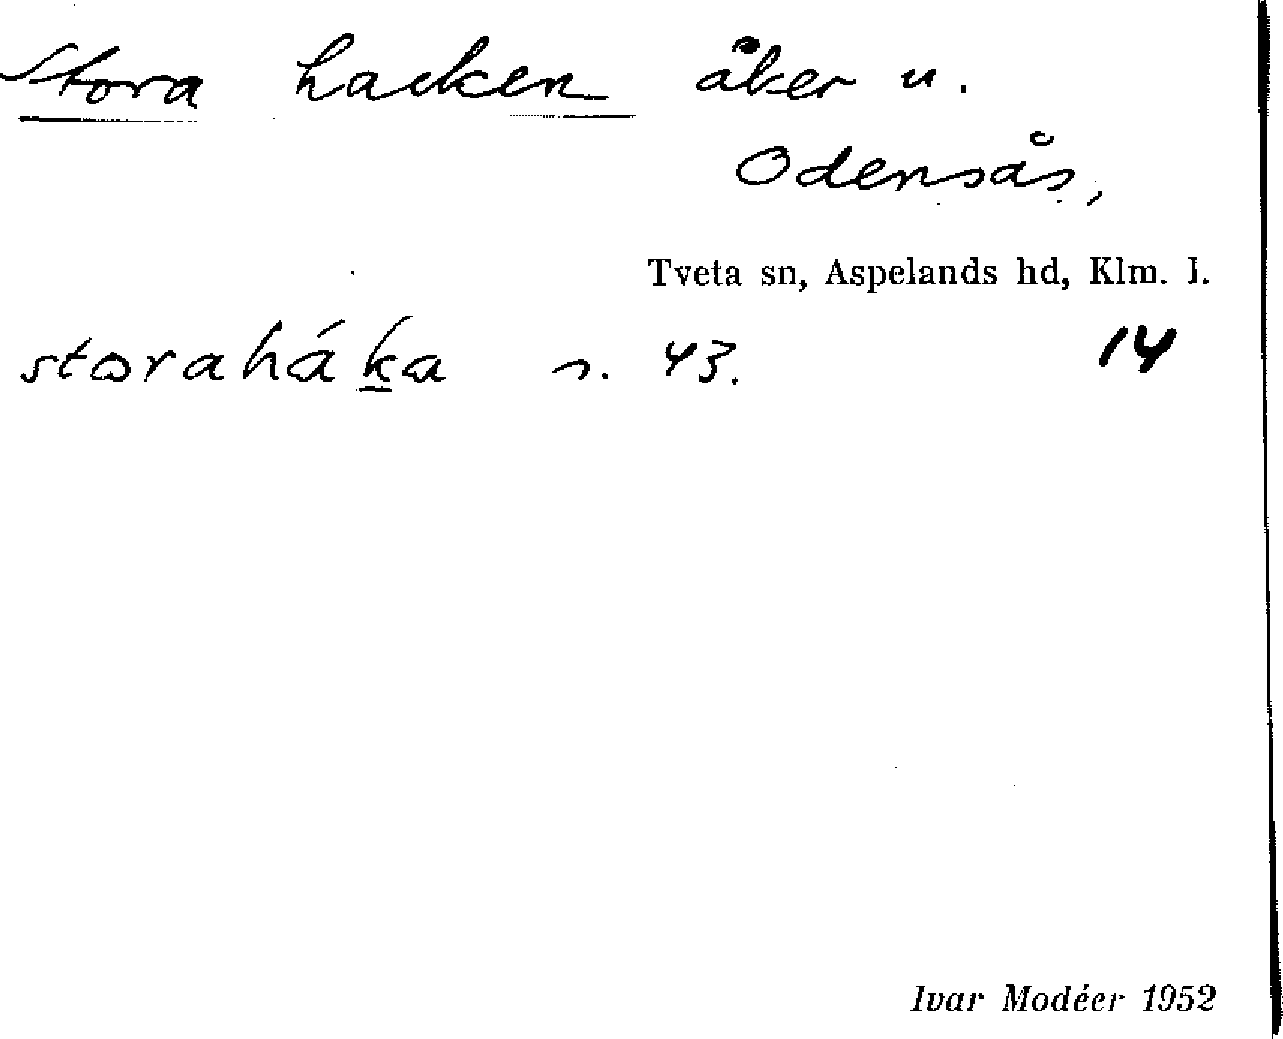 Stora hacken åker u.
Odensås,
Tveta sn, Aspelands hd, Klm. l.
storaháka s. 43. 14
Ivar Modéer 1952